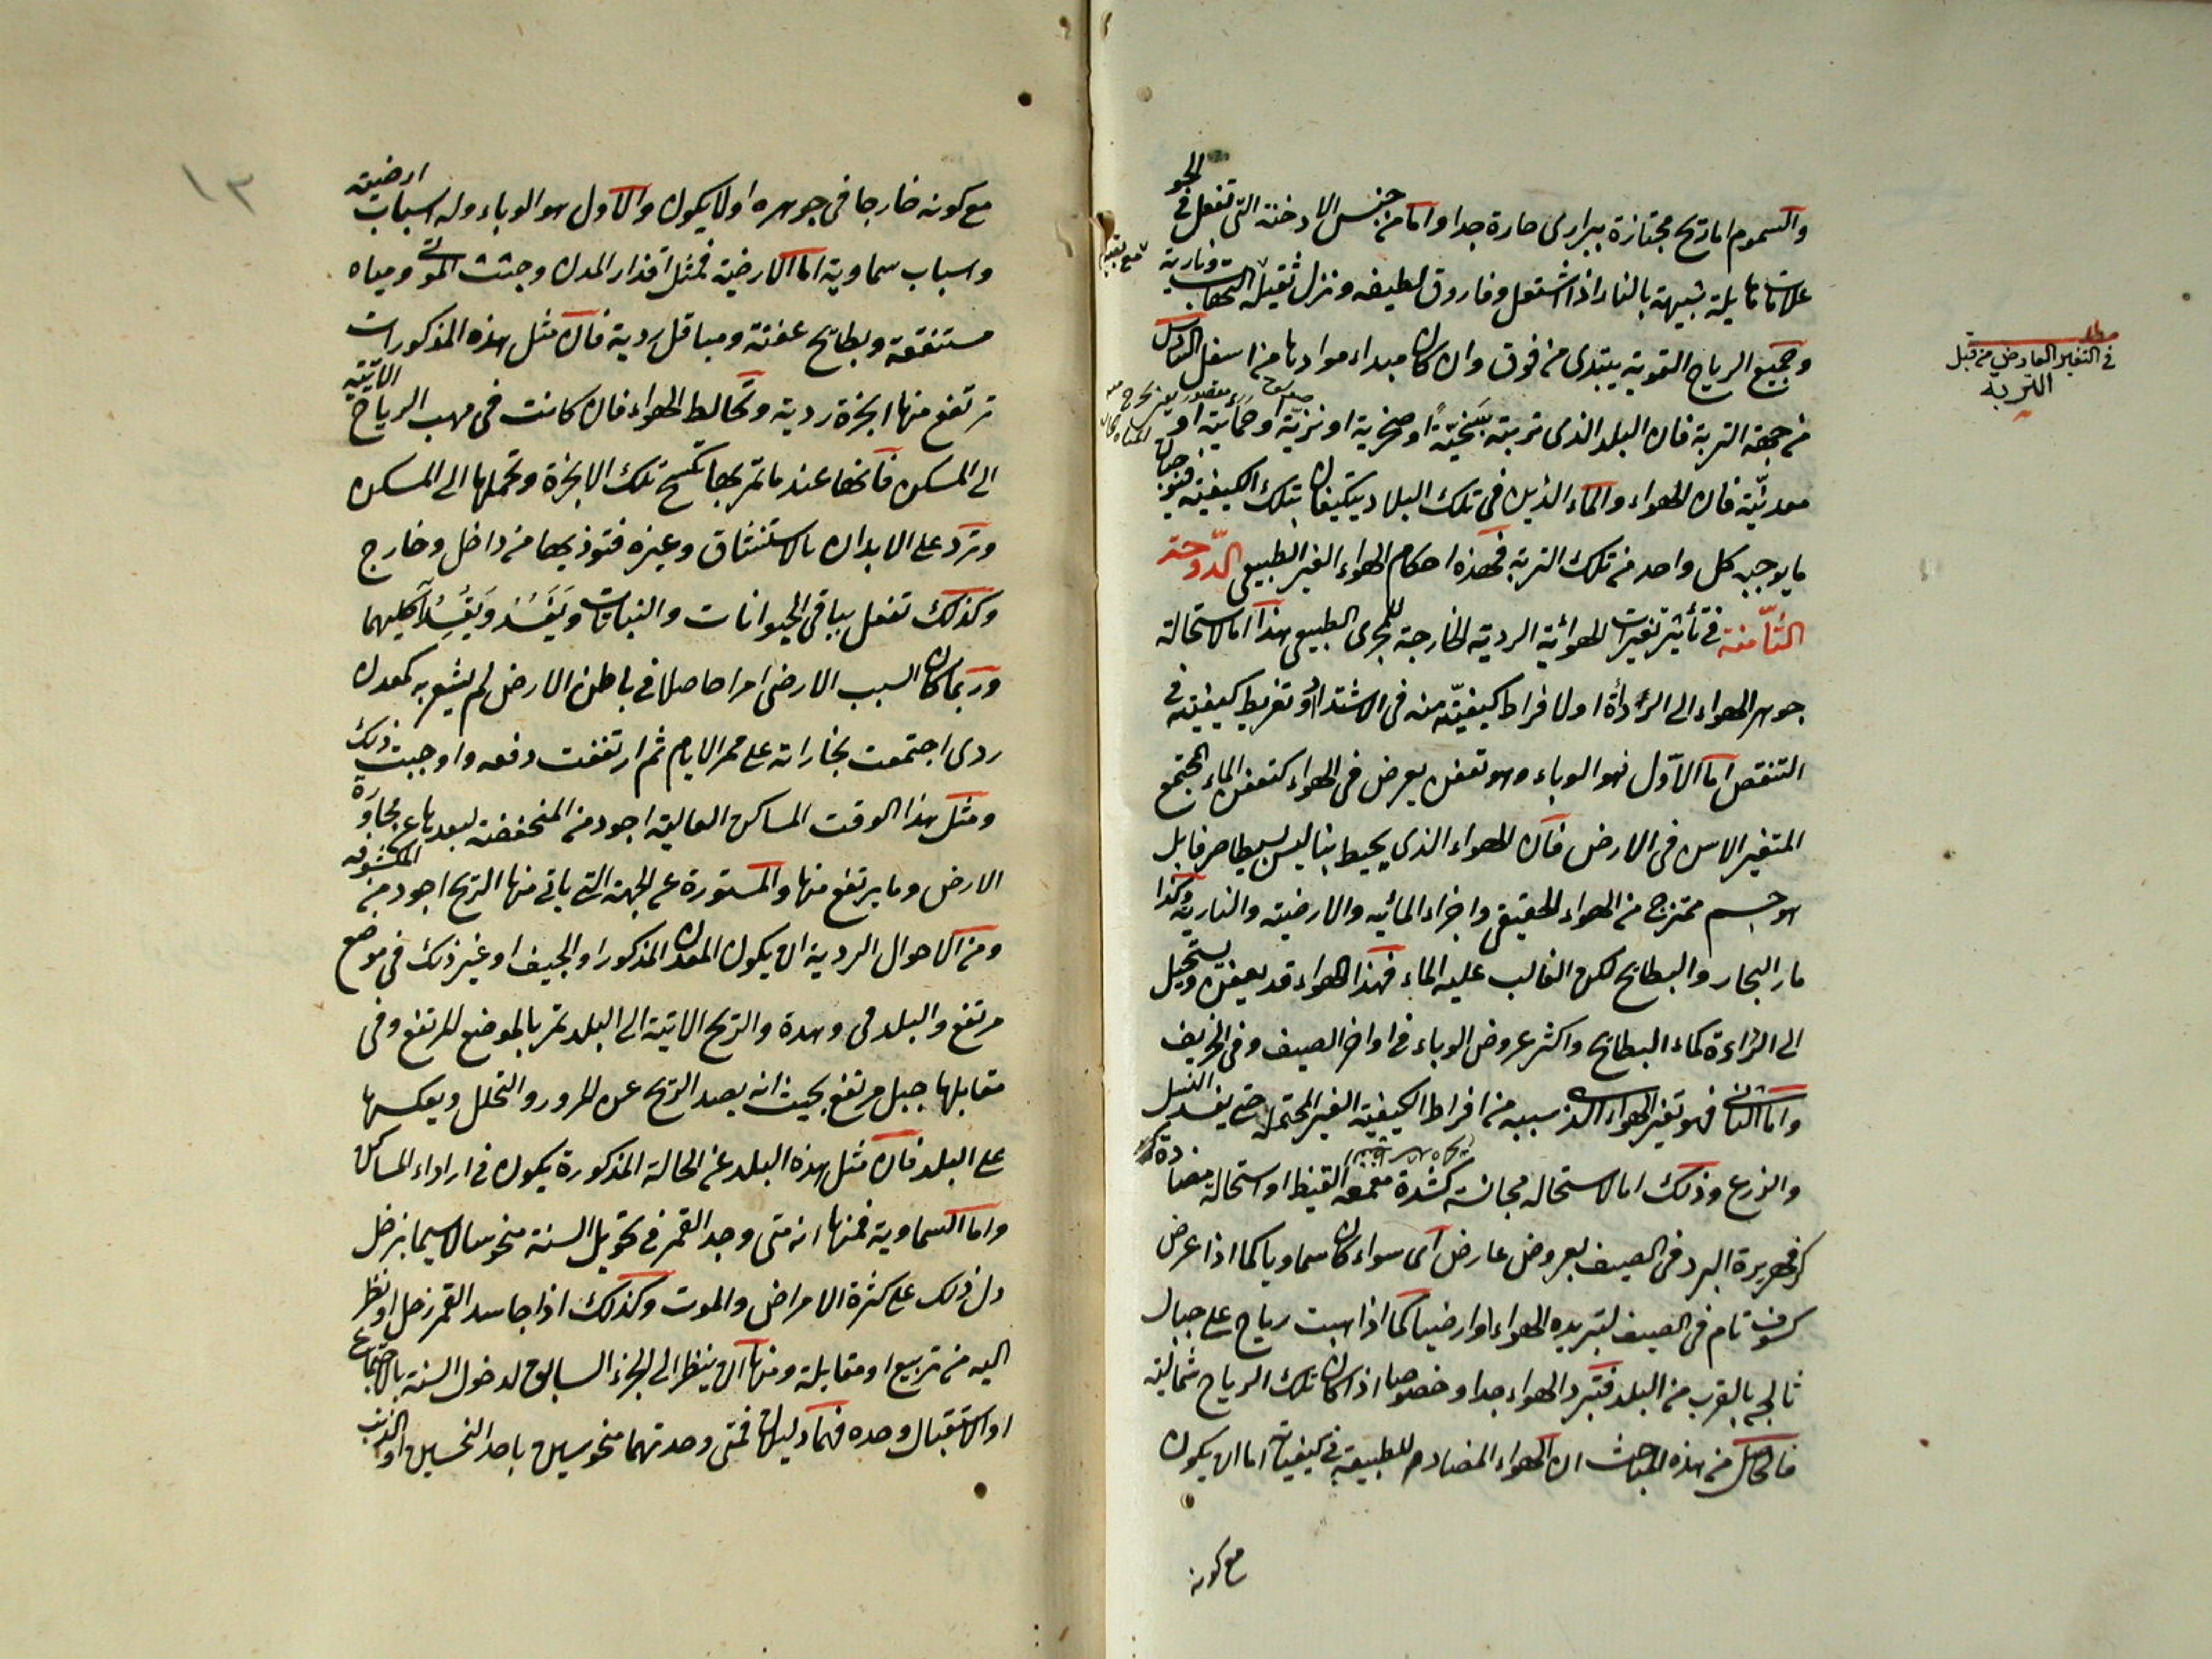 والسموم اما ريح مجتازة ببرارى حارة جدا واما من جنس الادخنة التى تفعل فى الجو
علامات هايلة شبيهة بالنار اذا اشتعل وفارق لطيفه ونزل ثقيله التهاب ونارية
وجميع الرياح القوية يبتدى من فوق وان كان مبداء موادها من اسفل
من جهة التربة فان البلد الذى تربته سبخية او صخرية او نزية او حمائية او
معدنية فان الهواء والماء الذين فى تلك البلاد يتكيفان بتلك الكيفية فيوجبان
ما يوجبه كل واحد من تلك التربة فهذه احكام الهواء الغير الطبيعى الدوحة
الثامنة فى تأثير تغيرات الهوائية الردية الخارجة للمجرى الطبيعى هذا اما لاستحالة
جوهر الهواء الى الردأة او لافراط كيفيته منه فى الاشتداد او تفريط كيفيته فى
التنقص اما الاول فهو الوباء وهو تعفن يعرض فى الهواء كتعفن الماء المجتمع
المتغير الاسن فى الارض فان الهواء الذى يحيط بنا ليس بسيطا صرفا بل
هو جسم ممتزج من الهواء الحقيقى واجزاء المائيه والارضية والنارية وكذا
مار البحار والبطايح لكن الغالب عليه الماء فهذا الهواء قد يعفن ويستحيل
الى الردءة كماء البطايح واكثر عروض الوباء فى اواخر الصيف وفى الخريف
واما الثانى فهو تغير الهواء الذى سببه من افراط الكيفية الغير المحتملة حتى يفسد النسل
والزرع وذلك اما لاستحاله مجانسة كشدة معمعه القيظ او استحالة مضادة
كزمهريرة البرد فى الصيف بعروض عارض اى سواء كان سماويا كما اذا عرض
كسوف تام فى الصيف لتبريده الهواء او ارضيا كما اذا هبت رياح على جبال
ثالجه بالقرب من البلد فتبرد الهواء جدا وخصوصا اذا كان تلك الرياح شمالية
فالحاصل من هذه المباحث ان الهواء المضادم للطبيعة فى كيفياته اما ان يكون
مع كونه
مطلب
فى التغير العارض من قبل
التربه
مع كونه خارجا فى جوهره او لا يكون والاول هو الوباء وله اسباب ارضية
واسباب سماوية اما الارضية فمثل اقذار المدن وجثث الموتى ومياه
مستنقعة وبطايح عفنة ومباقل ردية فان مثل هذه المذكورات
ترتفع منها ابخرة ردية وتخالط الهواء فان كانت فى مهب الرياح الاتية
الى المسكن فانها عند ما تمر بها تكسح تلك الابخرة وتحملها الى المسكن
وترد على الابدان بالاستنشاق وغيره فتوذيها من داخل وخارج
وكذلك تفعل بباقى الحيوانات والنباتات ويفسد ويفسد آكليهما
وربما كان السبب الارضى امرا حاصلا فى باطن الارض لم يشعر به كمعدن
ردى اجتمعت بخاراته على ممر الايام ثم ارتفعت دفعه واوجبت ذلك
ومثل هذا الوقت المساكن العالية اجود من المنخفضة لبعدها عن مجاورة
الارض وما يرتفع منها والمستورة عن الجهة التى ياتى منها الريح اجود من المكشوفه
ومن الاحوال الردية ان يكون المعدن المذكور او الجيف او غير ذلك فى موضع
مرتفع والبلد فى وهدة والريح الاتية الى البلد تمر بالموضع المرتفع وفى
مقابلها جبل مرتفع بحيث انه يصد الريح عن المرور والتحلل ويعكسها
على البلد فان مثل هذه البلد عن الحالة المذكورة يكون فى ارداء المساكن
واما السماوية فمنها انه متى وجد القمر فى تحويل السنة منحوسا لاسيما بزحل
دل ذلك على كثرة الامراض والموت وكذلك اذا جاسد القمر زحل او نظر
اليه من تربيع او مقابلة ومنها ان ينظر الى الجزء السابق لدخول السنة بالاجتماع
او الاستقبال وحده فهما دليلان فمتى وحدتهما منحوسين باحد النحسين او الذنب
١٣